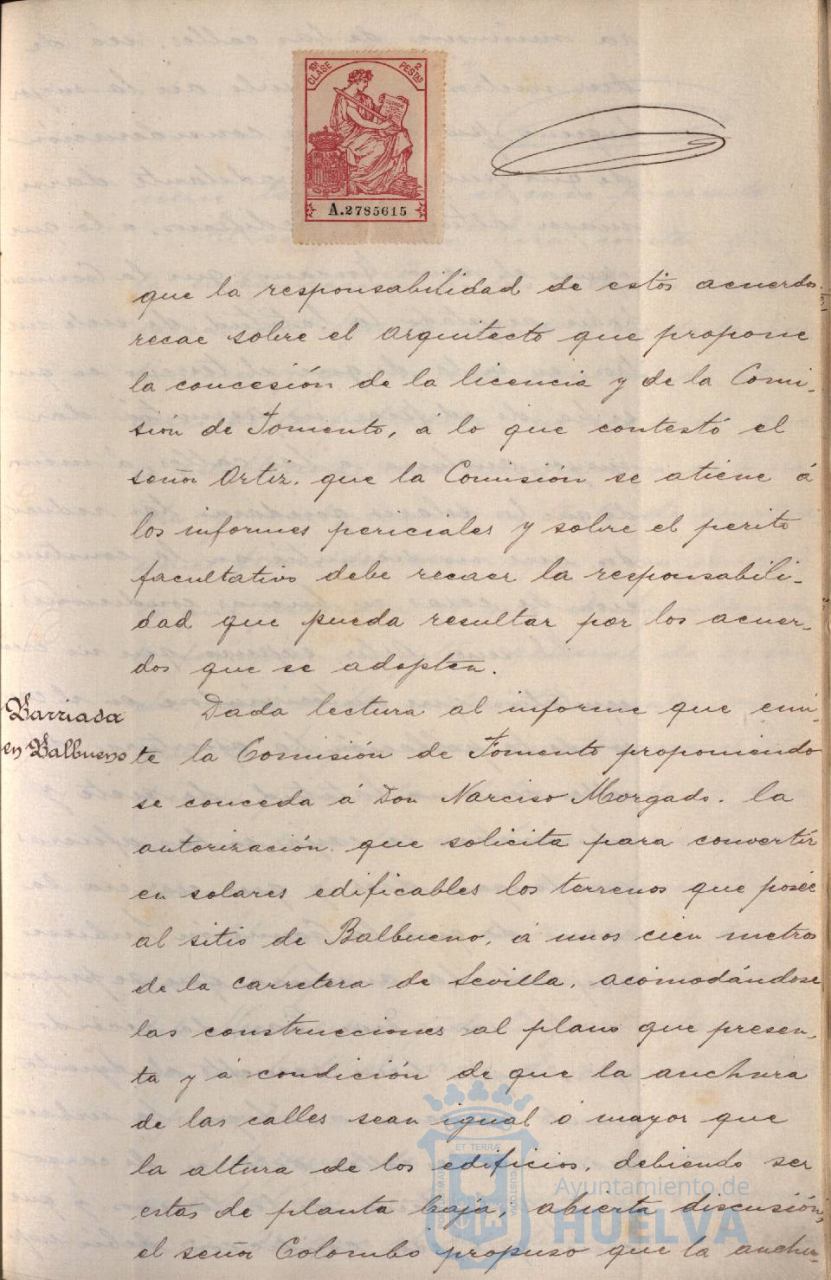 10ª CLASE 2 PESTAS
A.2785615
que la responsabilidad de estos acuerdos
recae sobre el Arquitecto que propone
la concesión de la licencia y de la Comi-
sión de Fomento, á lo que contestó el
señor Ortiz, que la Comisión se atiene á
los informes periciales y sobre el perito
facultativo debe recaer la responsabili-
dad que pueda resultar por los acuer-
dos que se adopten.
Barriada
en Balbueno
Dada lectura al informe que emi-
te la Comisión de Fomento proponiendo
se conceda á Don Narciso Morgado, la
autorización que solicita para convertir
en solares edificables los terrenos que posée
al sitio de Balbueno, á unos cien metros
de la carretera de Sevilla, acomodándose
las construcciones al plano que presen-
ta y á condición de que la anchura
de las calles sean igual ó mayor que
la altura de los edificios, debiendo ser
estos de planta baja, abierta discusión,
el señor Colombo propuso que la anchu-
ET TERRÆ
Ayuntamiento de
HUELVA